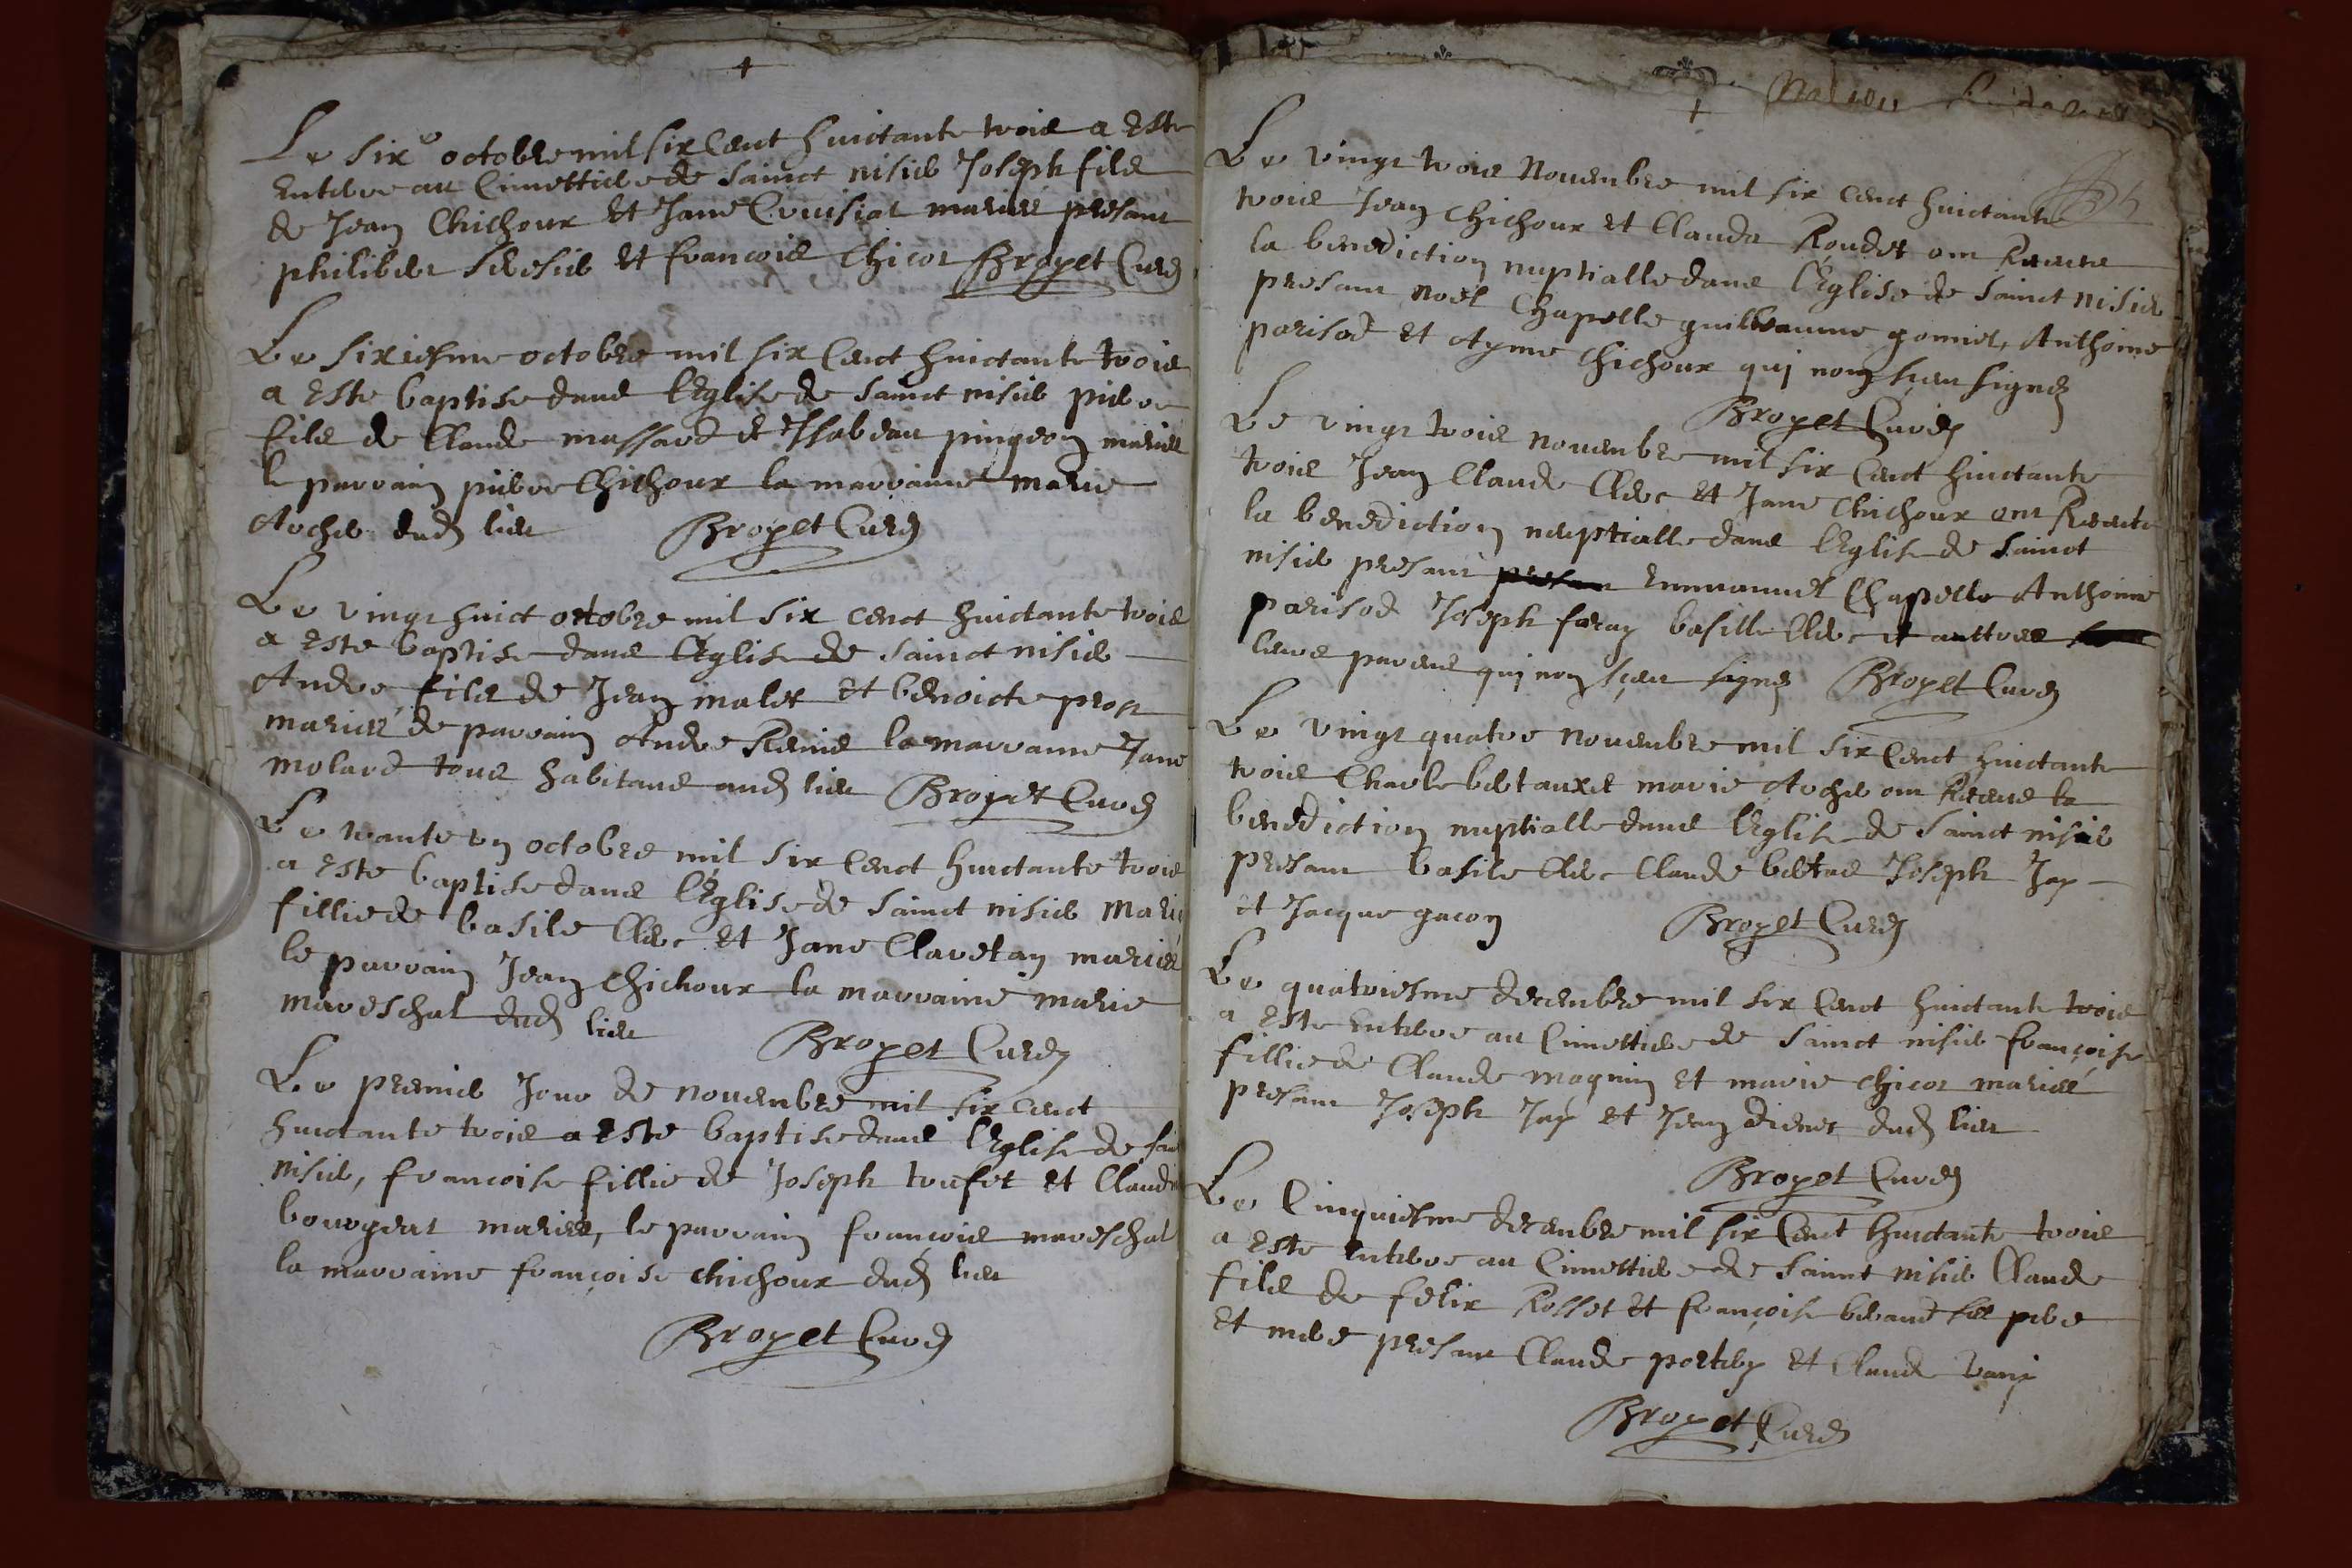 Le six^e octobre mil six cent huictante trois a este
enterre au Cimettiere de Sainct nisier Joseph fils
de Jean Chichoux et Jane Cruisiat mariés presant
philiber et francois Chicot Broyet Curé
Le sixiesme octobre mil six cent huictante trois
a este baptise dans l'Eglise de Sainct nisier pierre
fils de Claude massard et Ysabeau pingeon mariés
le parrain pierre Chichoux la marraine marie
Archer dud lieu Broyet Curé
Le vingt huict octobre mil six cent huictante trois
a este baptise dans l'Eglise de Sainct nisier
Andre fils de Jean malet et benoicte prost
mariés de parrain Andre la marraine Jane
molard tous habitans aud lieu Broyet Curé
Le trante un octobre mil six cent huictante trois
a este baptise dans l'Eglise de Sainct nisier Marie
fillie de basile Clerc et Jane Clavetan mariés
le parrain Jean Chichoux la marraine marie
mareschal dud lieu Broyet Curé
Le premier Jour de novembre mil six cent
huictante trois a este baptise dans l'Eglise de
nisier, francoise fillie de Joseph trufet et Claudine
bourgeat mariés, le parrain françois mareschal
la marraine françoise chichoux dud lieu
Broyet Curé
Le vingt trois Novembre mil six cent huictante
trois Jean Chichoux et Claude Roudet ont Receus
la benediction nuptialle dans l'Eglise de Sainct nisier
presant noel Chapelle guilleaume gonnet, Anthoine
parisod et Ayme Chichoux qui nont sceu signer
Broyet Curé
Le vingt trois novembre mil six cent huictante
trois Jean Claude Clerc et Jane Chichoux ont Receus
la benediction nuptialle dans l'Eglise de Sainct
nisier presant presant Emmanuel Chapelle Anthoine
parisod Joseph feray basille Clerc et auttres
leurs parens qui nont sçeu signer Broyet Curé
Le vingt quatre novembre mil six cent huictante
trois Charle bertaux et marie Archer ont Receus la
benediction nuptialle dans l'Eglise de Sainct nisier
presant basile Clerc Claude Joseph Jay
et Jacque gacon Broyet Curé
Le quatriesme decembre mil six cent huictante trois
a este enterre au Cimettiere de Sainct nisier françoise
fillie de Claude magnin et marie chicot mariés
presant Joseph Jay et Jean dud lieu
Broyet Curé
Le Cinquiesme decembre mil six cent huictante trois
a este enterre au Cimettiere de Sainct nisier Claude
fils de felix Rosset et françoise beraud ses pere
et mere presant Claude et Claude
Broyet Curé